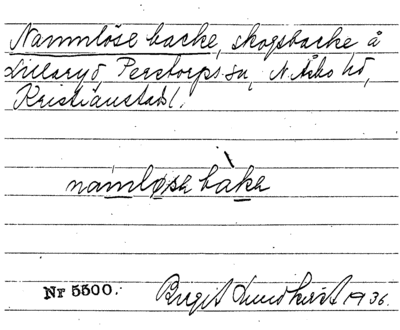 Nammlöse backe, skogsbacke å
Lillaryd Perstorps sn, N. Åsbo hd,
Kristianstads l.
namløsa bàka
Nr 5500. Birgit Lundkvist 1936.